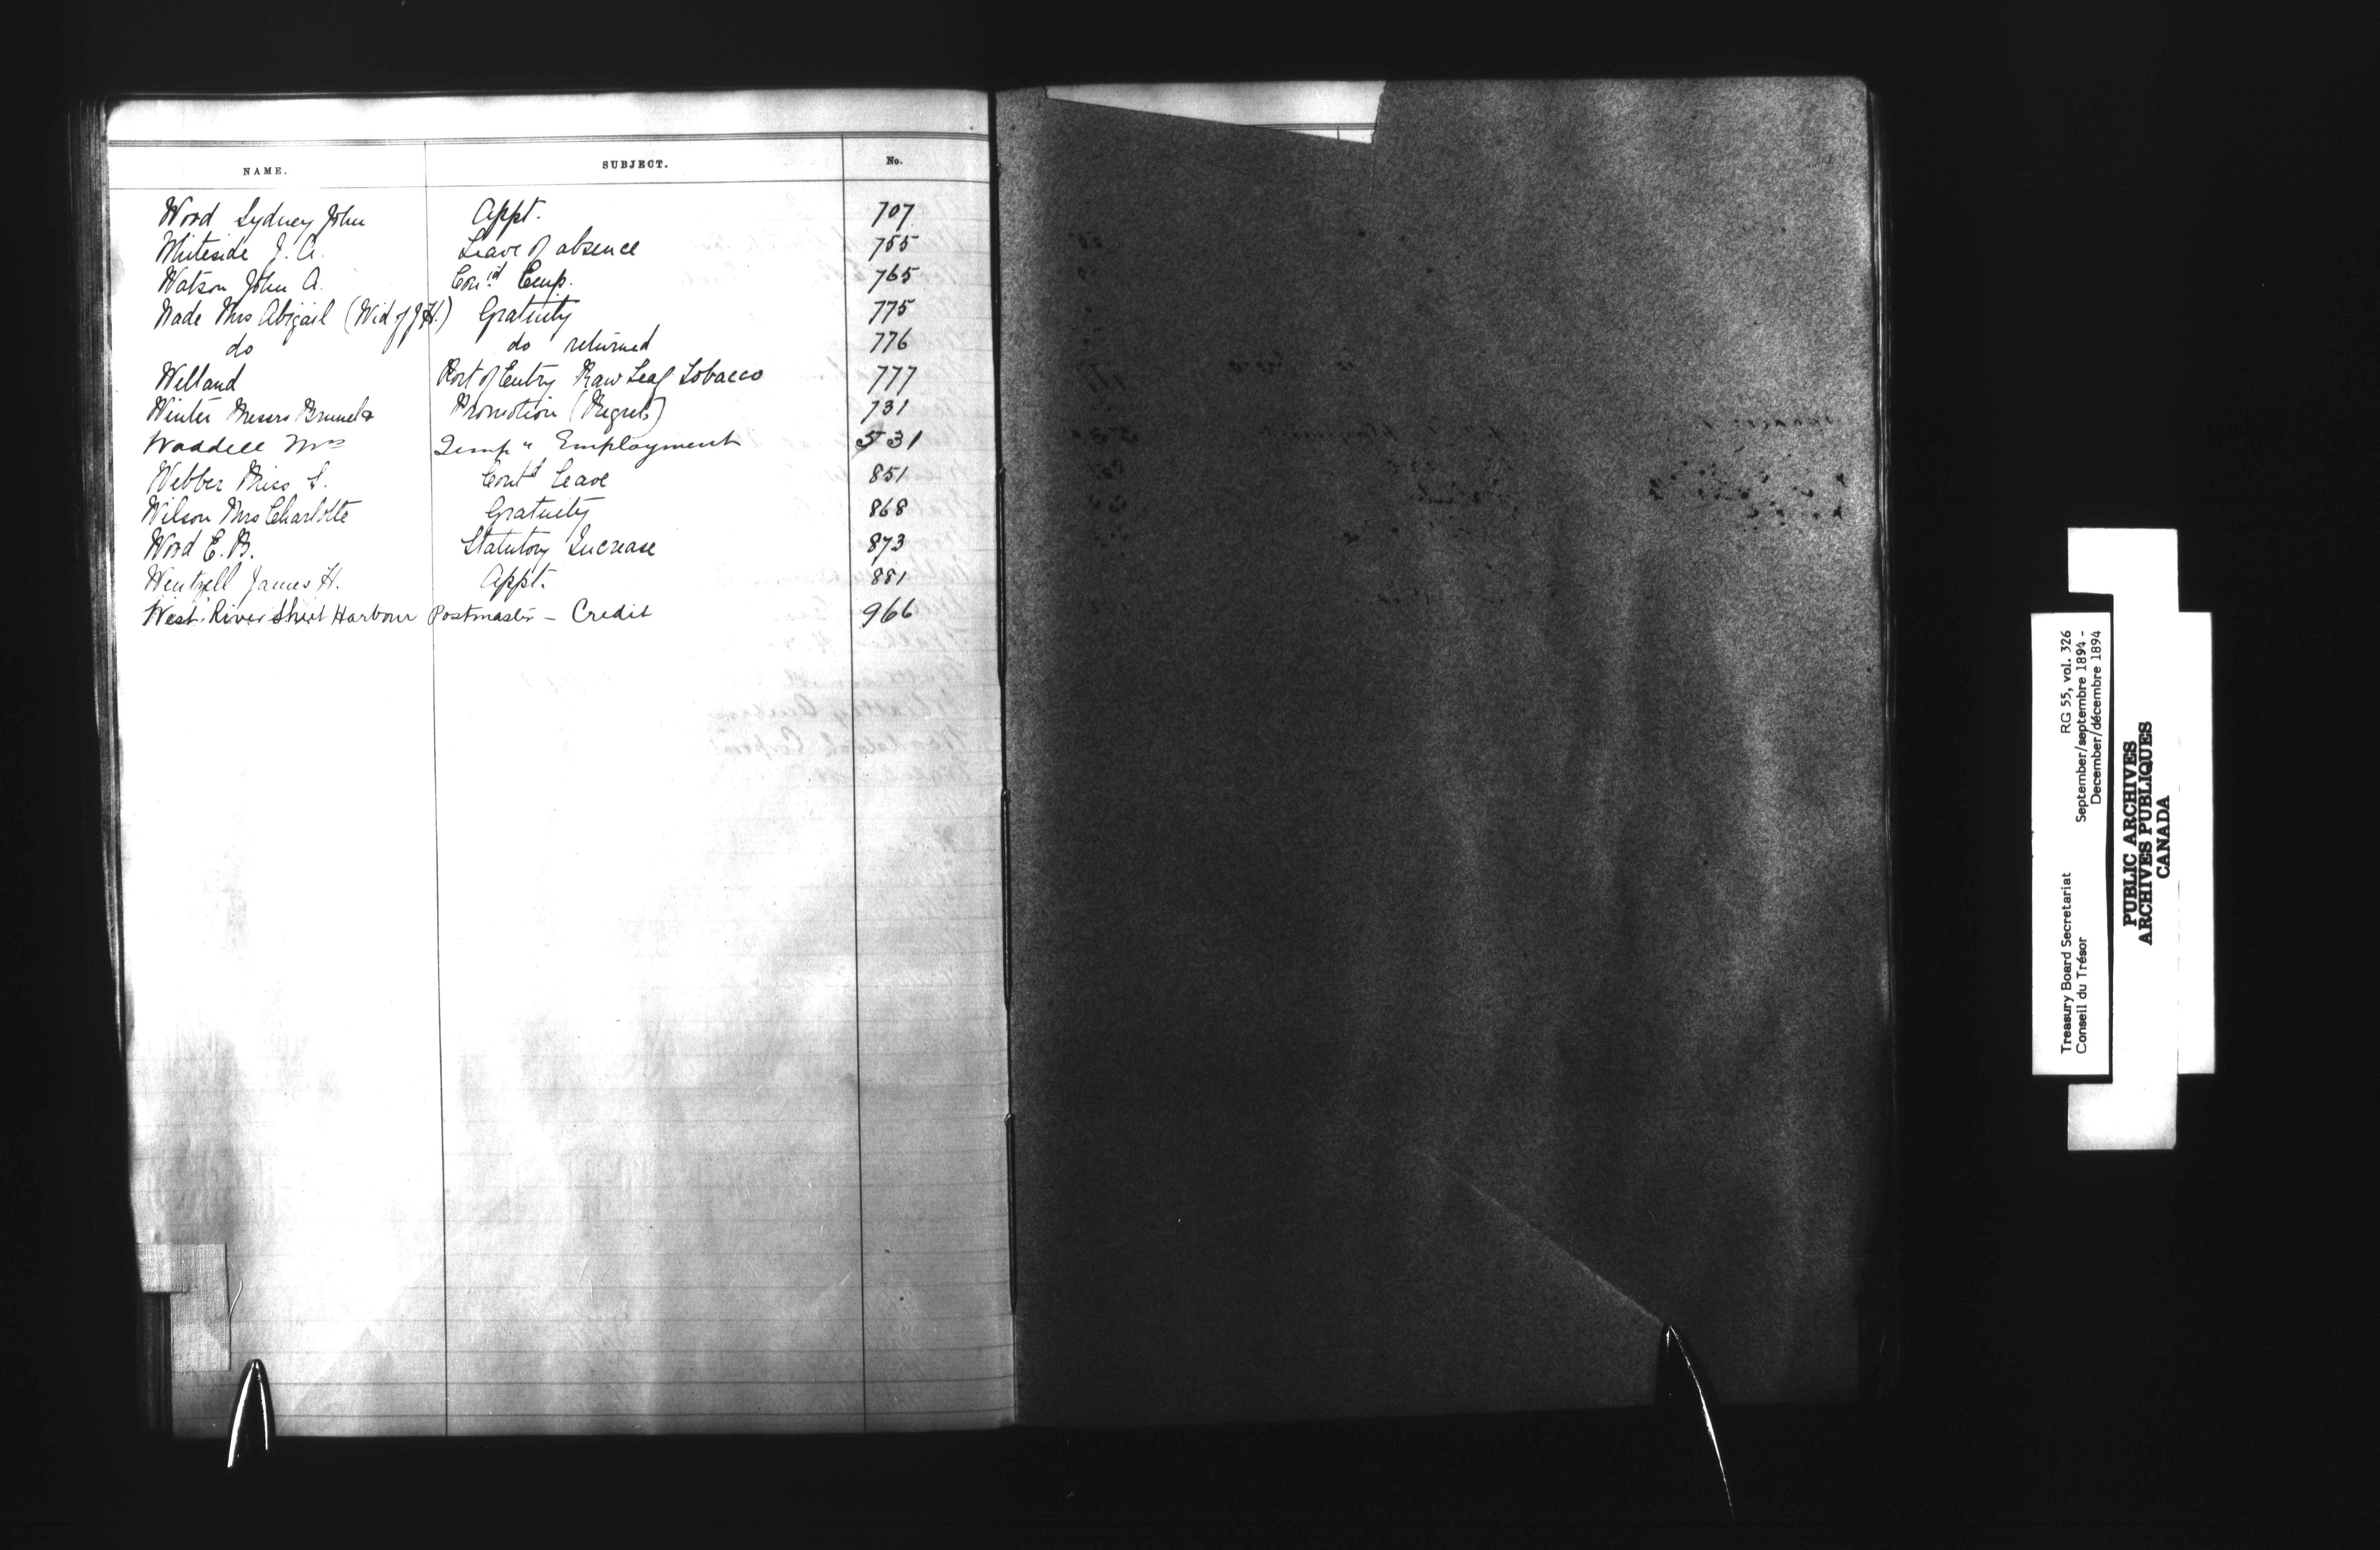 NAME. SUBJECT. No.
Wood Sydney John Appt. 707
Whiteside J. A. Leave of absence 755
Watson John A. Con'd Emp. 765
Wade Mrs Abigail (Wid of J H.) Gratuity 775
do do returned 776
Welland Port of Entry Raw Leaf Tobacco 777
Winter Messrs Brunel & Promotion (Regrets) 731
Waddell Mrs Temp " Employment 531
Webber Miss S. Cont'd Leave 851
Wilson Mrs Charlotte Gratuity 868
Wood E. B. Statutory Increase 873
Wentzell James H. Appt. 881
West River Sheet Harbour Postmaster - Credit 966
Treasury Board Secretariat RG 55, vol. 326
Conseil du Trésor September/septembre 1894 -
December/décembre 1894
PUBLIC ARCHIVES
ARCHIVES PUBLIQUES
CANADA